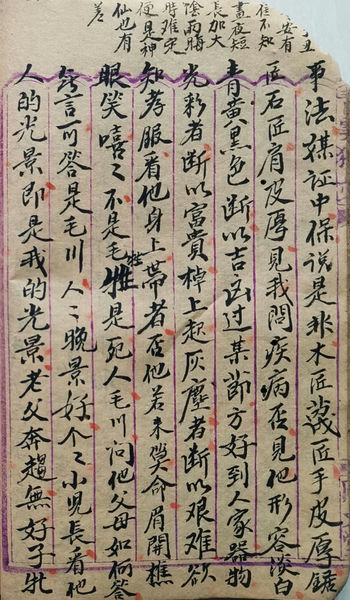 安有
住不知
晝夜短
長加大
陰雨時
時难定
便是神
仙也有
差
事法媒証中保說是非木匠篾匠手皮厚鋸
匠石匠肩皮厚見我問疾病否見他形容淡白
青黄黑色断以吉凶过某節方好到人家器物
光彩者断以富貴棹上起灰塵者断以艰难欲
知孝服看他身上帶者否他若未喪命眉開樵
眼笑嘻〻不是毛牲是死人毛川问他父母如何答
言可答是毛川人〻晚景好个〻小児長看他
人的光景即是我的光景老父奔趨無好子牝